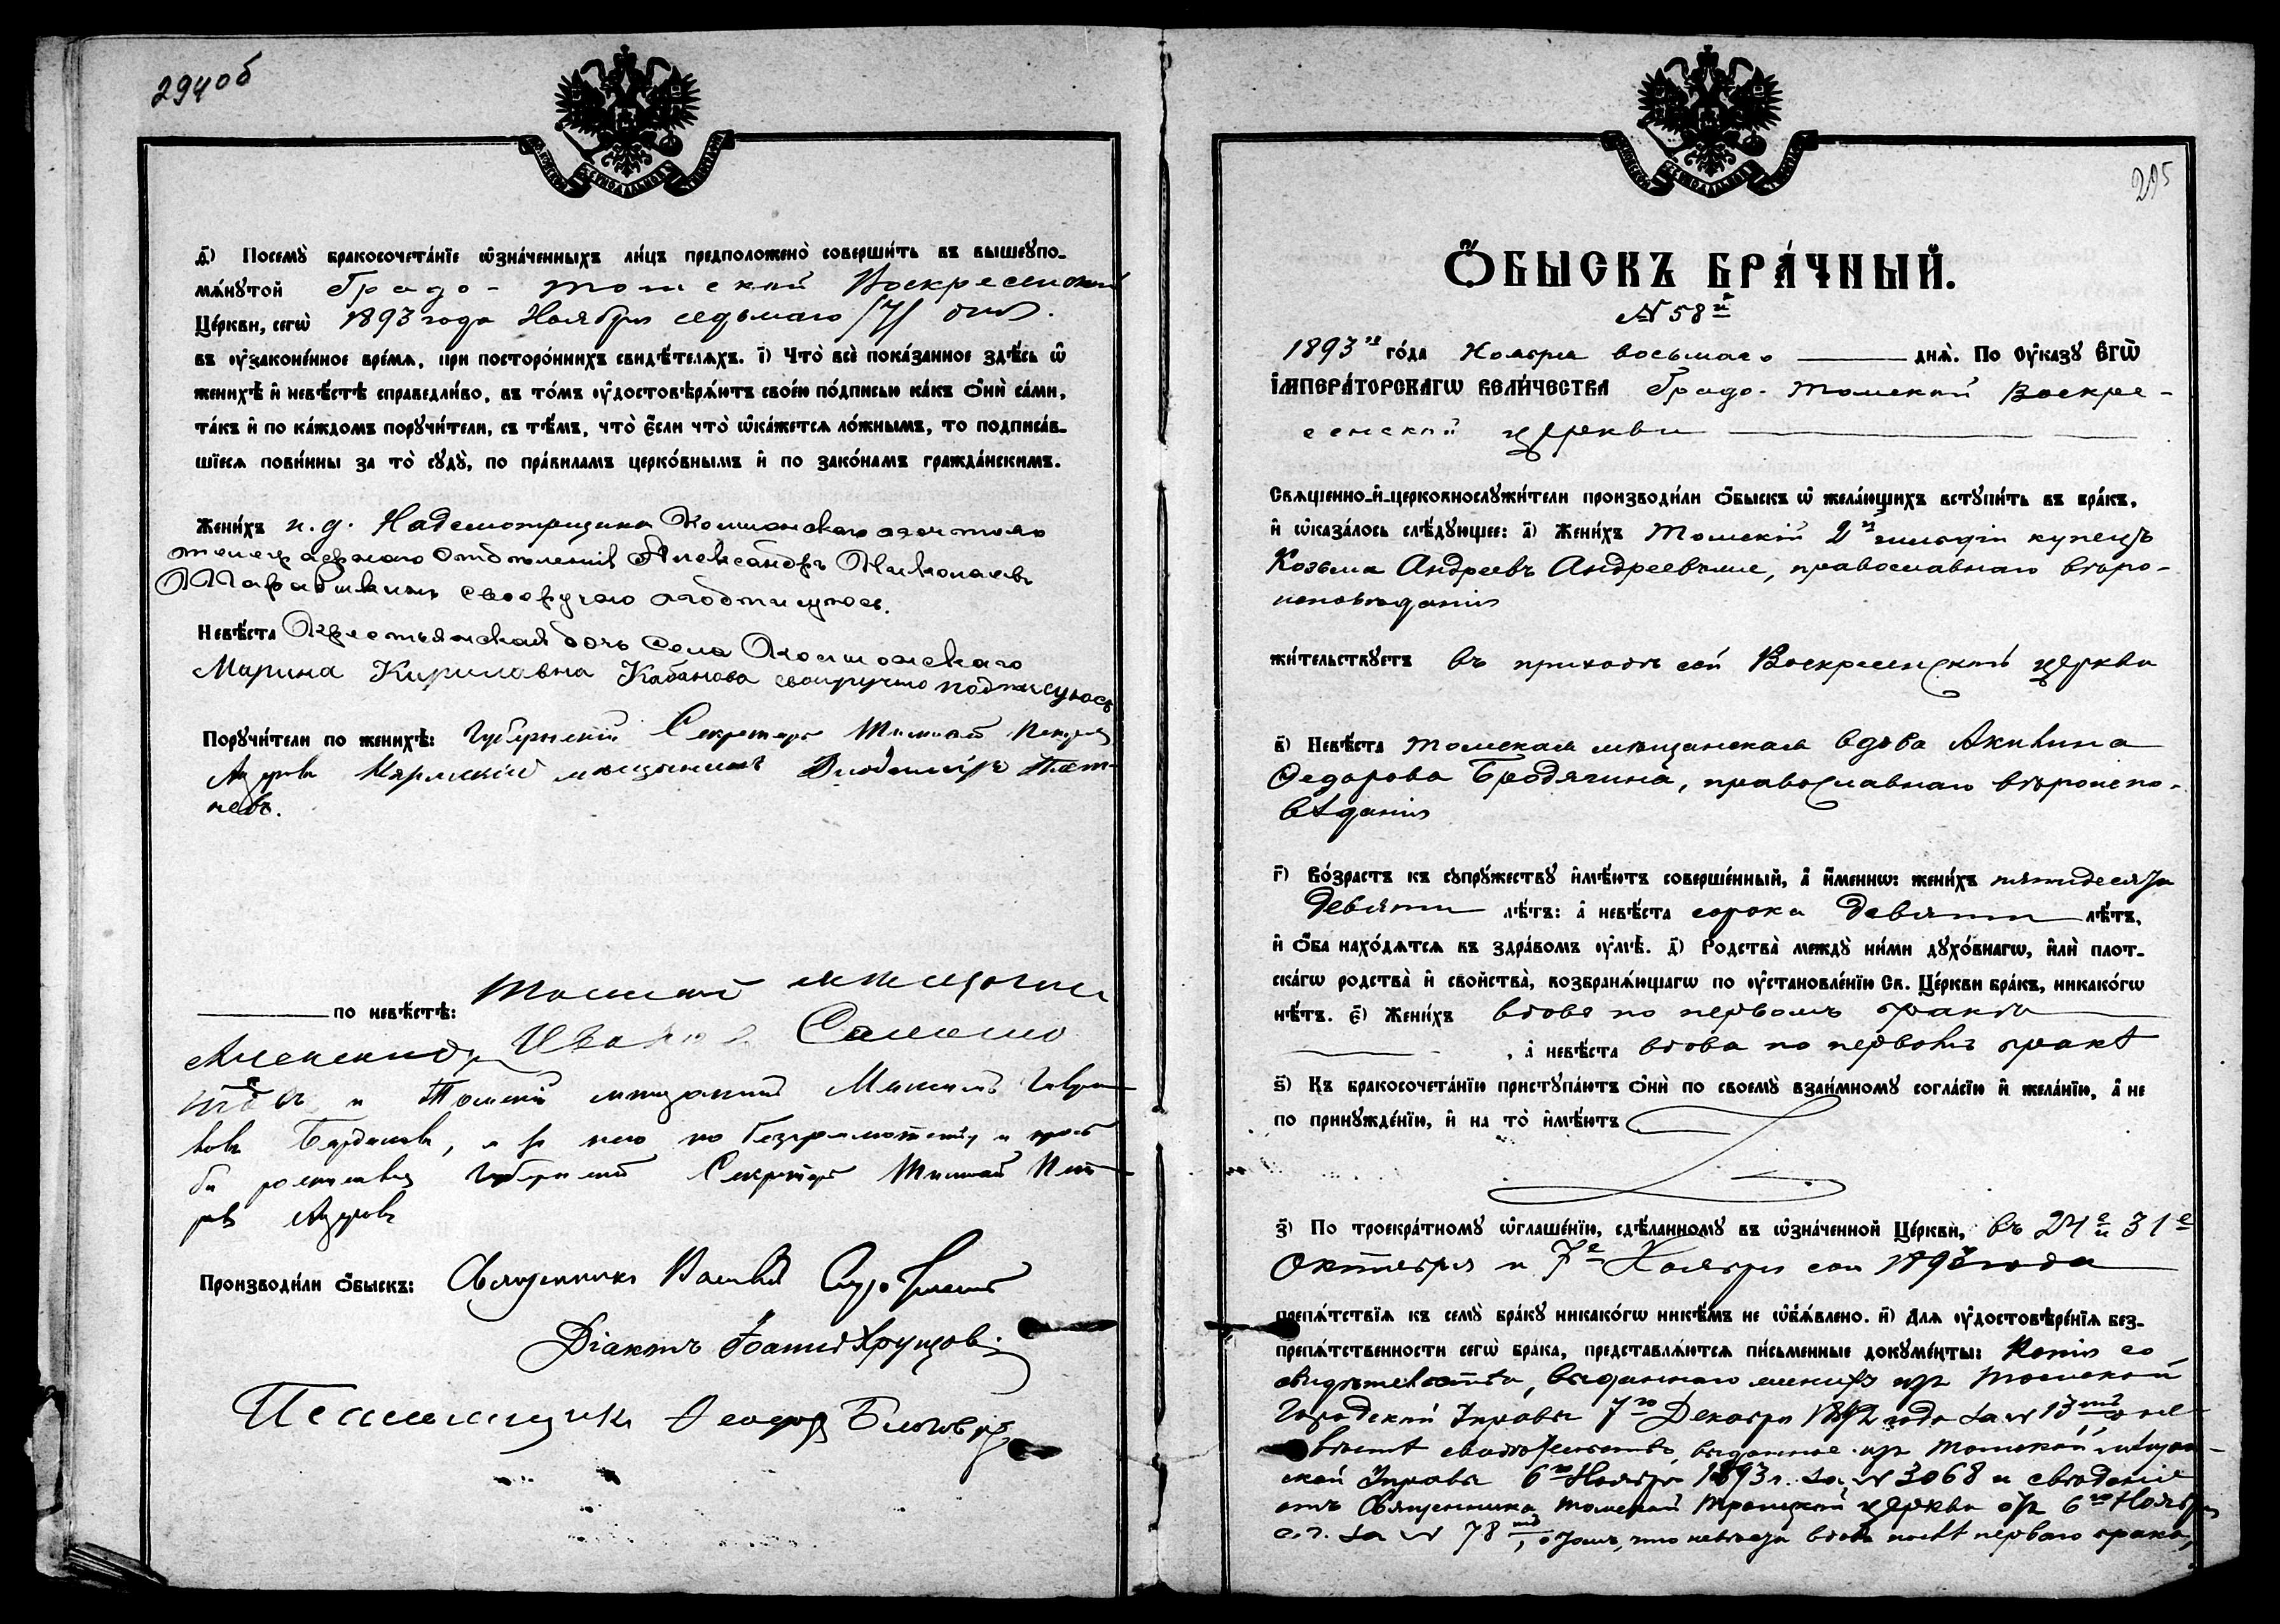 294об
д҃) Посемꙋ̀ бракосочета́нїе ѡ҆зна́ченныхъ ли́цъ предположено̀ соверши́ть въ вышеꙋпо-
мѧ́нꙋтой Градо-Томской Воскресенской
Це́ркви, сегѡ̀ 1893 года Ноября седьмаго /7/ дня.
въ ᲂу҆законе́нное вре́мѧ, при посторо́ннихъ свидѣ́телѧхъ. і҃) Что̀ всѐ пока́занное здѣ́сь ѡ҆
женихѣ̀ и҆ невѣ́стѣ справедли́во, въ то́мъ ᲂу҆достовѣрѧ́ютъ свое́ю по́дписью ка́къ ѻ҆нѝ са́ми,
та́къ и҆ по ка́ждомъ порꙋчи́тели, съ тѣ́мъ, что̀ є҆́сли что̀ ѡ҆ка́жетсѧ ло́жнымъ, то подписа́в-
шїесѧ пови́нны за то̀ сꙋдꙋ̀, по пра́виламъ церко́внымъ и҆ по зако́намъ гражда́нскимъ.
Жени́хъ и. д. Надсмотрщика
отдѣленія Александръ Николаевъ
своеручно подписуюсь.
Невѣ́ста Крестьянская дочь Села
Марина Кириловна Кабанова своеручно подписуюсь
Порꙋчи́тели по женихѣ̀: Губернскій Секретарь Тимофей Петровъ
мѣщанинъ Владиміръ
невъ.
по невѣ́стѣ: Томскій мѣщанинъ
Александръ Иванов
и Томскій мѣщанинъ
ковъ, а за него по безграмотству и прозь
бѣ росписался Губернскій Секретарь Тимофей Пет
ровъ
Производи́ли ѻ҆́быскъ: Священникъ Василій
Діаконъ Іоаннъ Хрущовъ.
Псаломщикъ Ѳеодоръ
295
Ѻ҆БЫСКЪ БРА́ЧНЫЙ.
№ 58й
1893го го́да Ноября восьмаго днѧ̀. По ᲂу҆ка́зꙋ Є҆ГѠ̀
І҆МПЕРА́ТОРСКАГѠ ВЕЛИ́ЧЕСТВА Градо-Томской Воскре-
сенской церкви
Свѧще́нно-и҆-церковнослꙋжи́тели производи́ли ѻ҆́быскъ ѡ҆ жела́ющихъ встꙋпи́ть въ бра́къ,
и҆ ѡ҆каза́лось слѣ́дꙋющее: а҃) Жени́хъ Томскій 2й гильдіи купецъ
Козьма Андреевъ Андреевыхъ, православнаго вѣро-
исповѣданія
жи́тельствꙋетъ въ приходѣ сей Воскресенской церкви
в҃) Невѣ́ста Томская мѣщанская вдова Акилина
Ѳедорова Бродягина, православнаго вѣроиспо-
вѣданія
г҃) Во́зрастъ къ сꙋпрꙋ́жествꙋ и҆мѣ́ютъ соверше́нный, а҆ и҆́меннѡ: жени́хъ пятидесяти
девяти лѣ́тъ: а҆ невѣ́ста сорока девяти лѣ́тъ,
и҆ ѻ҆́ба нахо́дѧтсѧ въ здра́вомъ ᲂу҆мѣ̀. д҃) Родства̀ междꙋ̀ ни́ми дꙋхо́внагѡ, и҆лѝ плот-
ска́гѡ родства̀ и҆ сво́йства̀, возбранѧ́ющагѡ по ᲂу҆становле́нїю Св. Це́ркви бра́къ, никако́гѡ
нѣ́тъ. є҃) Жени́хъ вдовъ по первомъ бракѣ
, а҆ невѣ́ста вдова по первомъ бракѣ
ѕ҃) Къ бракосочета́нїю пристꙋпа́ютъ ѻ҆нѝ по своемꙋ̀ взаи́мномꙋ согла́сїю и҆ жела́нїю, а҆ не
по принꙋжде́нїю, и҆ на то̀ и҆мѣ́ютъ
з҃) По троекра́тномꙋ ѡ҆глаше́нїю, сдѣ́ланномꙋ въ ѡ҆зна́ченной Це́ркви, въ 24е и 31е
Октября и 7е Ноября сего 1893 года
препѧ́тствїѧ къ семꙋ̀ бра́кꙋ никако́гѡ никѣ́мъ не ѡ҆б̾ѧ́влено. и҃) Для ᲂу҆достовѣре́нїѧ без-
препѧ́тственности сегѡ̀ бра́ка, представлѧ́ютсѧ пи́сьменные докꙋме́нты: Копія со
свидѣтельства, выданнаго жениху изъ Томской
Городской Управы 7го Декабря 1892 года за № 13 и не
вѣстѣ свидѣтельство, выданное изъ Томской мѣщан-
ской Управы 6го Ноября 1893 г. за № 3068 и свѣдѣніе
отъ Священника Томской Троицкой церкви отъ 6го Ноября
с. г. за № 78, о томъ, что невѣста вдова послѣ перваго брака,